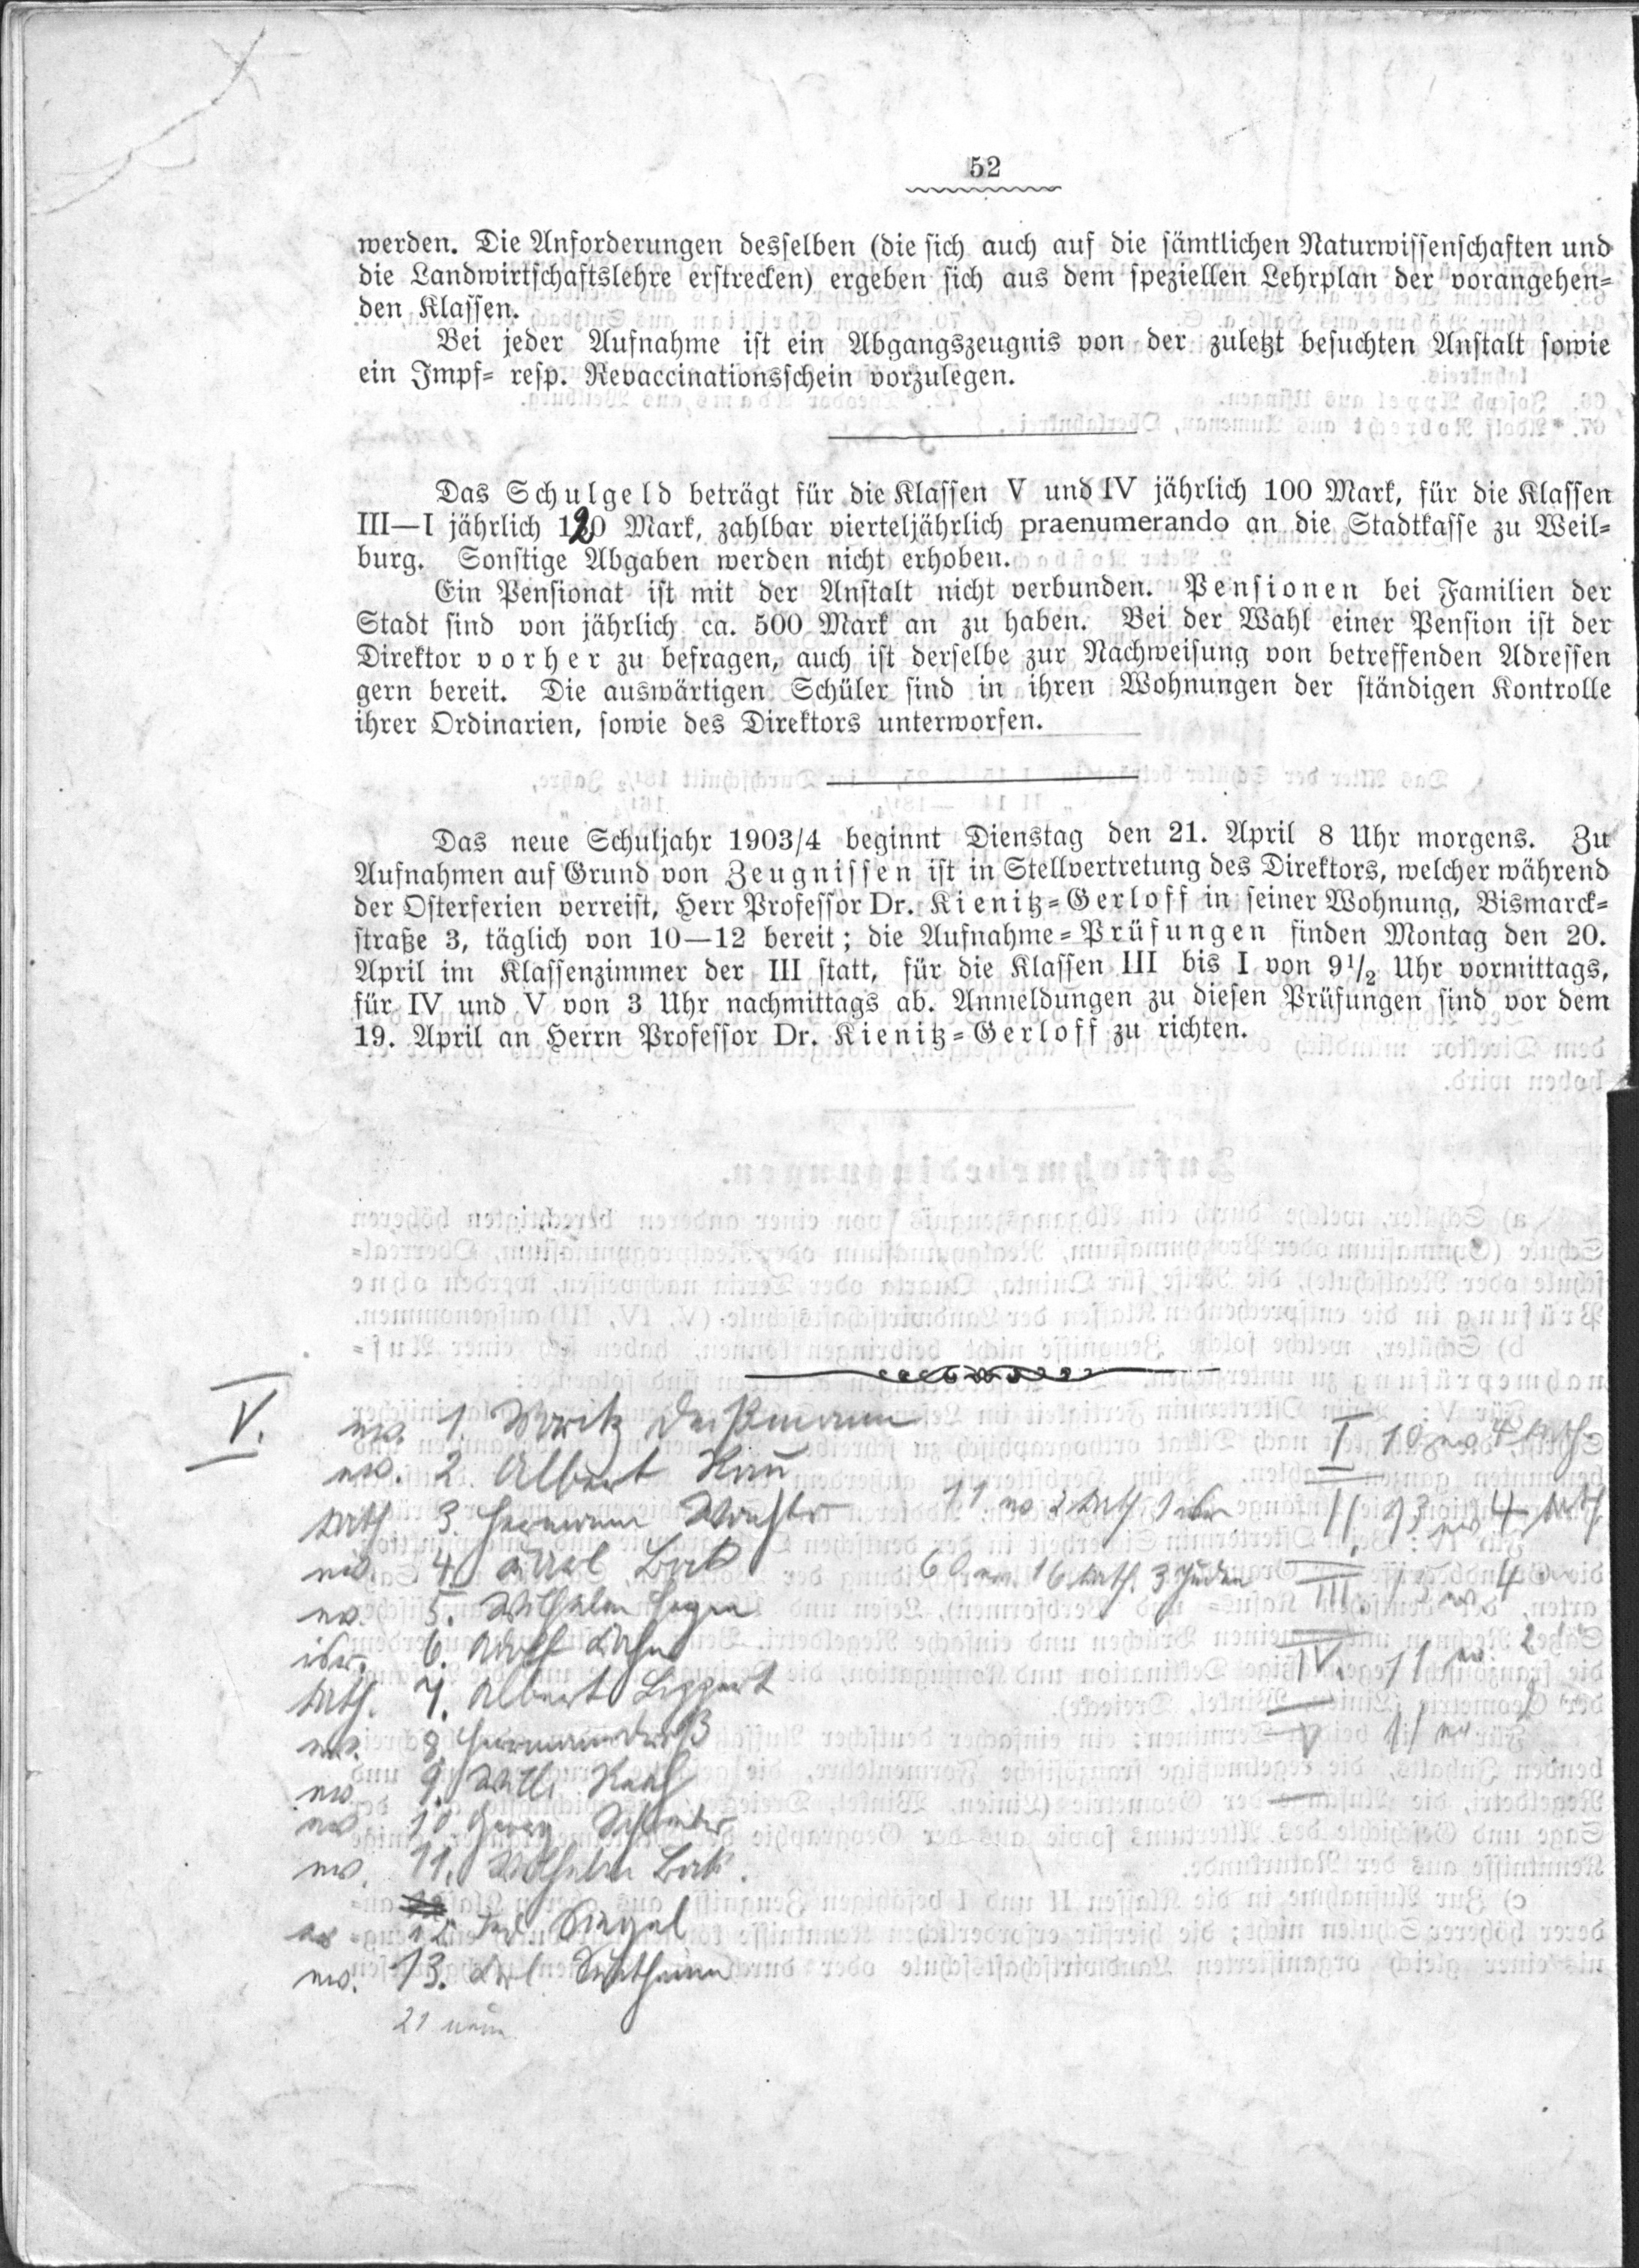 52
werden. Die Anforderungen desselben (die sich auch auf die sämtlichen Naturwissenschaften und
die Landwirtschaftslehre erstrecken) ergeben sich aus dem speziellen Lehrplan der vorangehen-
den Klassen.
Bei jeder Aufnahme ist ein Abgangszeugnis von der zuletzt besuchten Anstalt sowie
ein Impf- resp. Revaccinationsschein vorzulegen.
Das Schulgeld beträgt für die Klassen V und IV jährlich 100 Mark, für die Klassen
III—I jährlich 120 Mark, zahlbar vierteljährlich praenumerando an die Stadtkasse zu Weil-
burg. Sonstige Abgaben werden nicht erhoben.
Ein Pensionat ist mit der Anstalt nicht verbunden. Pensionen bei Familien der
Stadt sind von jährlich ca. 500 Mark an zu haben. Bei der Wahl einer Pension ist der
Direktor vorher zu befragen, auch ist derselbe zur Nachweisung von betreffenden Adressen
gern bereit. Die auswärtigen Schüler sind in ihren Wohnungen der ständigen Kontrolle
ihrer Ordinarien, sowie des Direktors unterworfen.
Das neue Schuljahr 1903/4 beginnt Dienstag den 21. April 8 Uhr morgens. Zu
Aufnahmen auf Grund von Zeugnissen ist in Stellvertretung des Direktors, welcher während
der Osterferien verreist, Herr Professor Dr. Kienitz-Gerloff in seiner Wohnung, Bismarck-
straße 3, täglich von 10—12 bereit; die Aufnahme-Prüfungen finden Montag den 20.
April im Klassenzimmer der III statt, für die Klassen III bis I von 9½ Uhr vormittags,
für IV und V von 3 Uhr nachmittags ab. Anmeldungen zu diesen Prüfungen sind vor dem
19. April an Herrn Professor Dr. Kienitz-Gerloff zu richten.
V.
ev. 1. Moritz Deißmann
ev. 2 Albert
kath 3. Hermann
ev. 4.
ev. 5. Wilhelm
isr. 6. Adolf
kath. 7. Albert Lippert
ev. 8 Hermann
ev. 9. Willi
ev 10 Georg
ev. 11. Wilhelm
ev 12 Siegel
ev. 13. Karl
21
I 10 ev 4 kath.
11 ev 2 kath 1 isr
II. 13 ev. 4 kath.
60 ev. 16 kath. 3 Juden
III. 15 ev. 4
IV. 11 ev. 2
V 11 ev